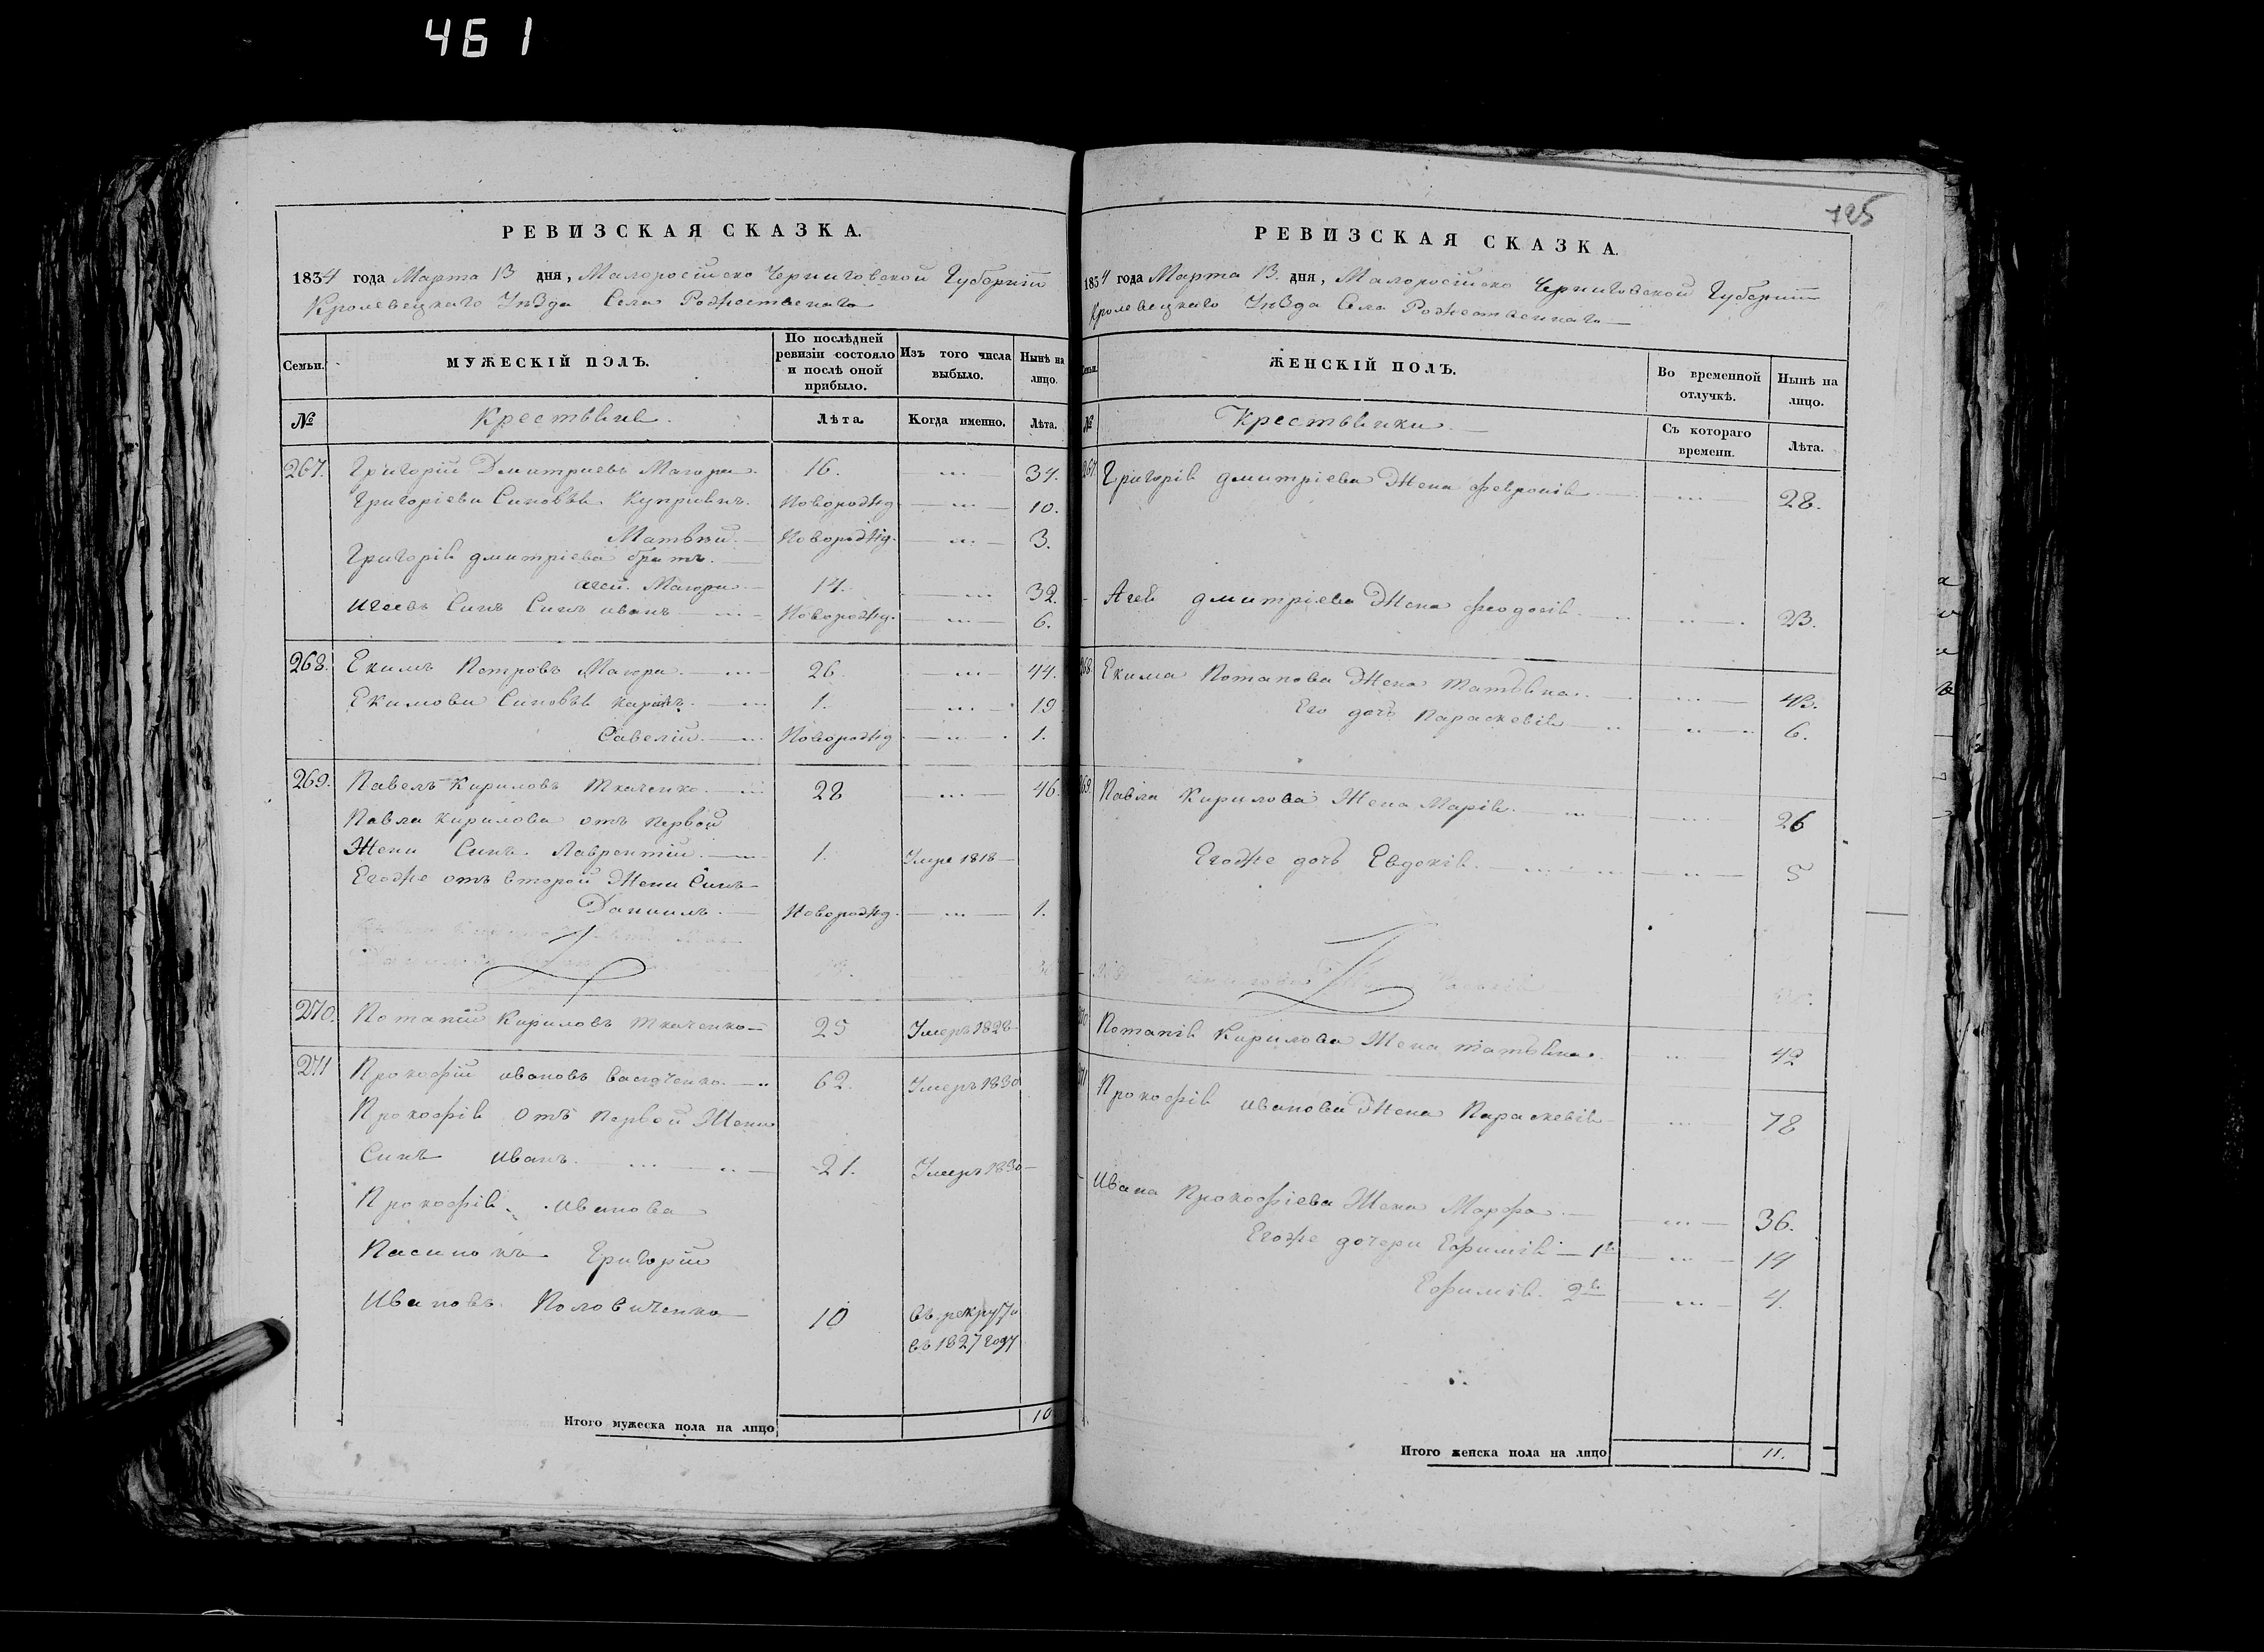 461
РЕВИЗСКАЯ СКАЗКА.
1834 года Марта 13 дня, Малоросійско Черниговской Губерніи
Кролевецкаго Уѣзда Села Рождественаго
Семьи.
МУЖЕСКІЙ ПОЛЪ.
По послѣдней ревизіи состояло и послѣ оной прибыло.
Изъ того числа выбыло.
Нынѣ на лицо.
№
Крестьяне.
Лѣта.
Когда именно.
Лѣта.
267. Григорій Дмитріевъ 16. ... 34.
Григоріева Синовья Купріянъ. Новорожд. ... 10.
Матвѣй. Новорожд. ... 3.
Григорія дмитріева братъ.
14. ... 32.
Синъ иванъ Новорожд. ... 6.
268. Екимъ Петровъ 26. ... 44.
Екимови Синовья 1. ... 19
Савелій. Новорожд ... 1.
269. Павелъ Кириловъ Ткаченко. 28 ... 46.
Павла Кирилова отъ первой
Жени Синъ Лаврентій. 1. Умре 1818
Егоже отъ второй Жени Синъ
Даниилъ. Новорожд. ... 1.
270. Потапій Кириловъ Ткаченко 25 Умеръ 1828
271 Прокофій ивановъ 62. Умеръ 1830
Прокофія отъ первой Жени
Синъ иванъ. 21. Умеръ 1830
Прокофія иванова
Пасинокъ Григорій
Ивановъ 10 въ рекруты
въ 1827 году
Итого мужеска пола на лицо 10
125
РЕВИЗСКАЯ СКАЗКА.
1834 года Марта 13. дня, Малоросійско Черниговской Губерніи
Кролевецкаго Уѣзда Села Рождественнаго
ЖЕНСКІЙ ПОЛЪ.
Во временной отлучкѣ.
Нынѣ на лицо.
№
Крестьянки.
Съ котораго времени.
Лѣта.
267 Григорія дмитріева Жена Февронія ... 28.
Агея дмитріева Жена Феодосія ... 23.
268 Екима Потапова Жена Татьяна. ... 43.
Его дочь Параскевія ... 6.
269 Павла Кирилова Жена Марія. ... 26
Егоже дочь Евдокія. ... 5
270 Потапія Кирилова Жена Татьяна. ... 42
271 Прокофія иванова Жена Параскевія ... 78
Ивана Прокофіева Жена Марфа. ... 36.
Егоже дочери Ефимія 1я ... 14
Ефимія. 2я ... 4.
Итого женска пола на лицо 11.